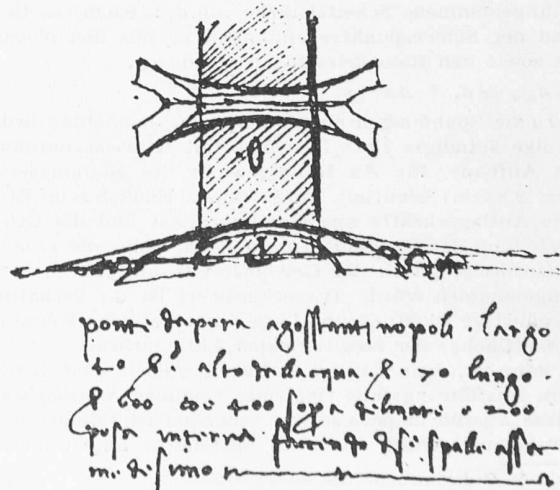 ponte da pera a gosstantinopoli . largo
40 br alto dallacqua br 70 lungo .
br 600 coe 400 sopa del mare e 200
posa in terra faciendo di se spalle asse
medesimo